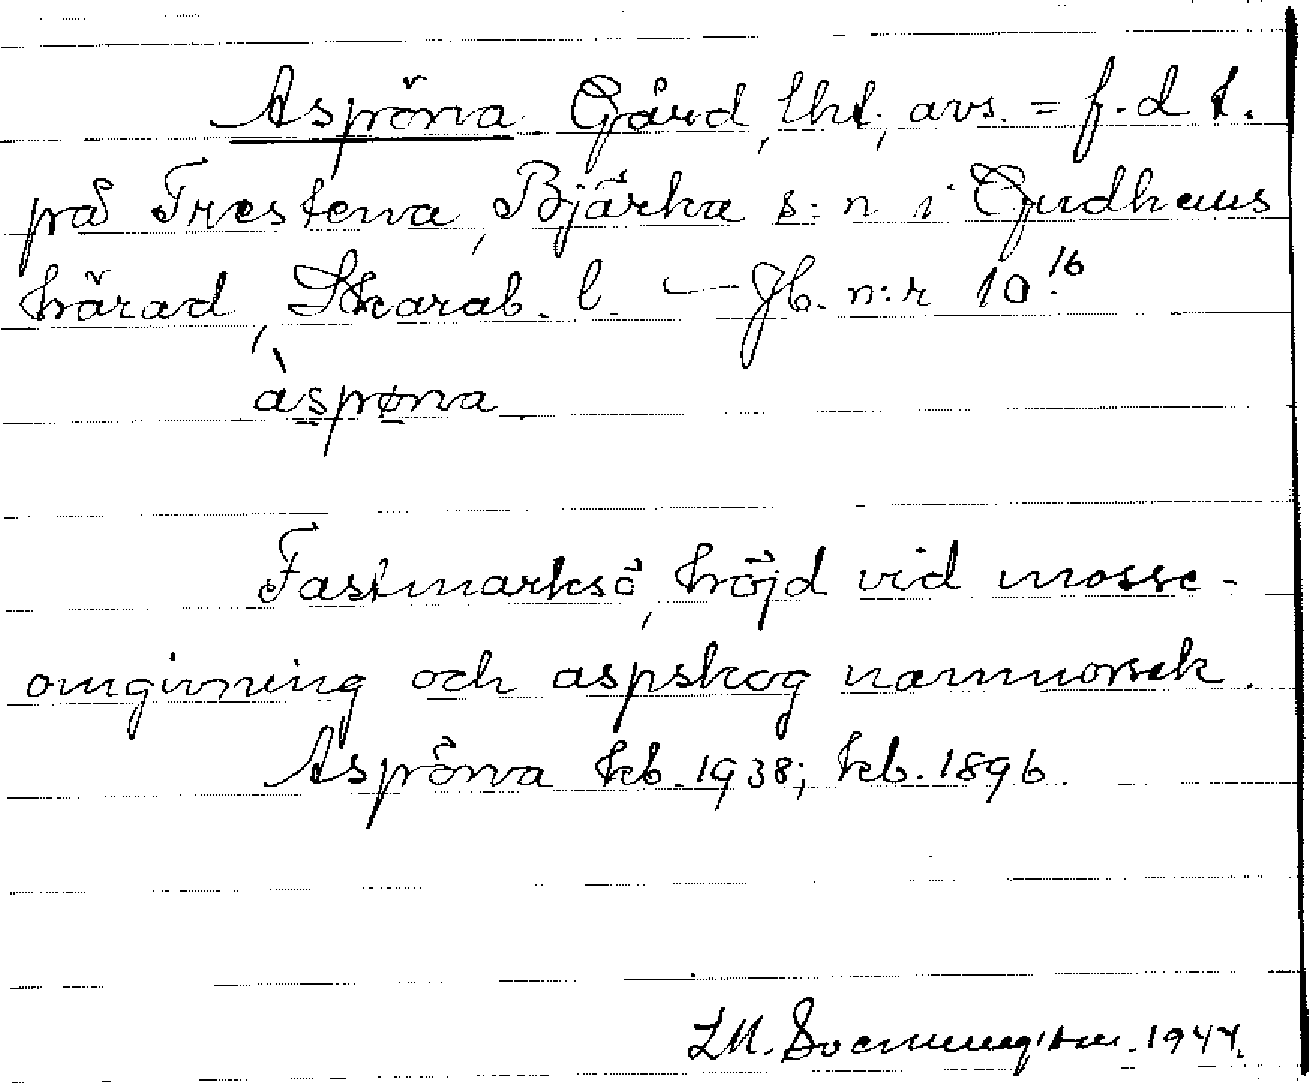 Aspöna Gård, lht., avs. = f. d t.
på Trestena, Bjärka s:n i Gudhems
härad, Skarab. l. — Jb. n:r 10.16
àspøna
Fastmarksö, höjd vid mosse-
omgivning och aspskog namnorsak.
Aspöna kb. 1938; kb. 1896.
1947.